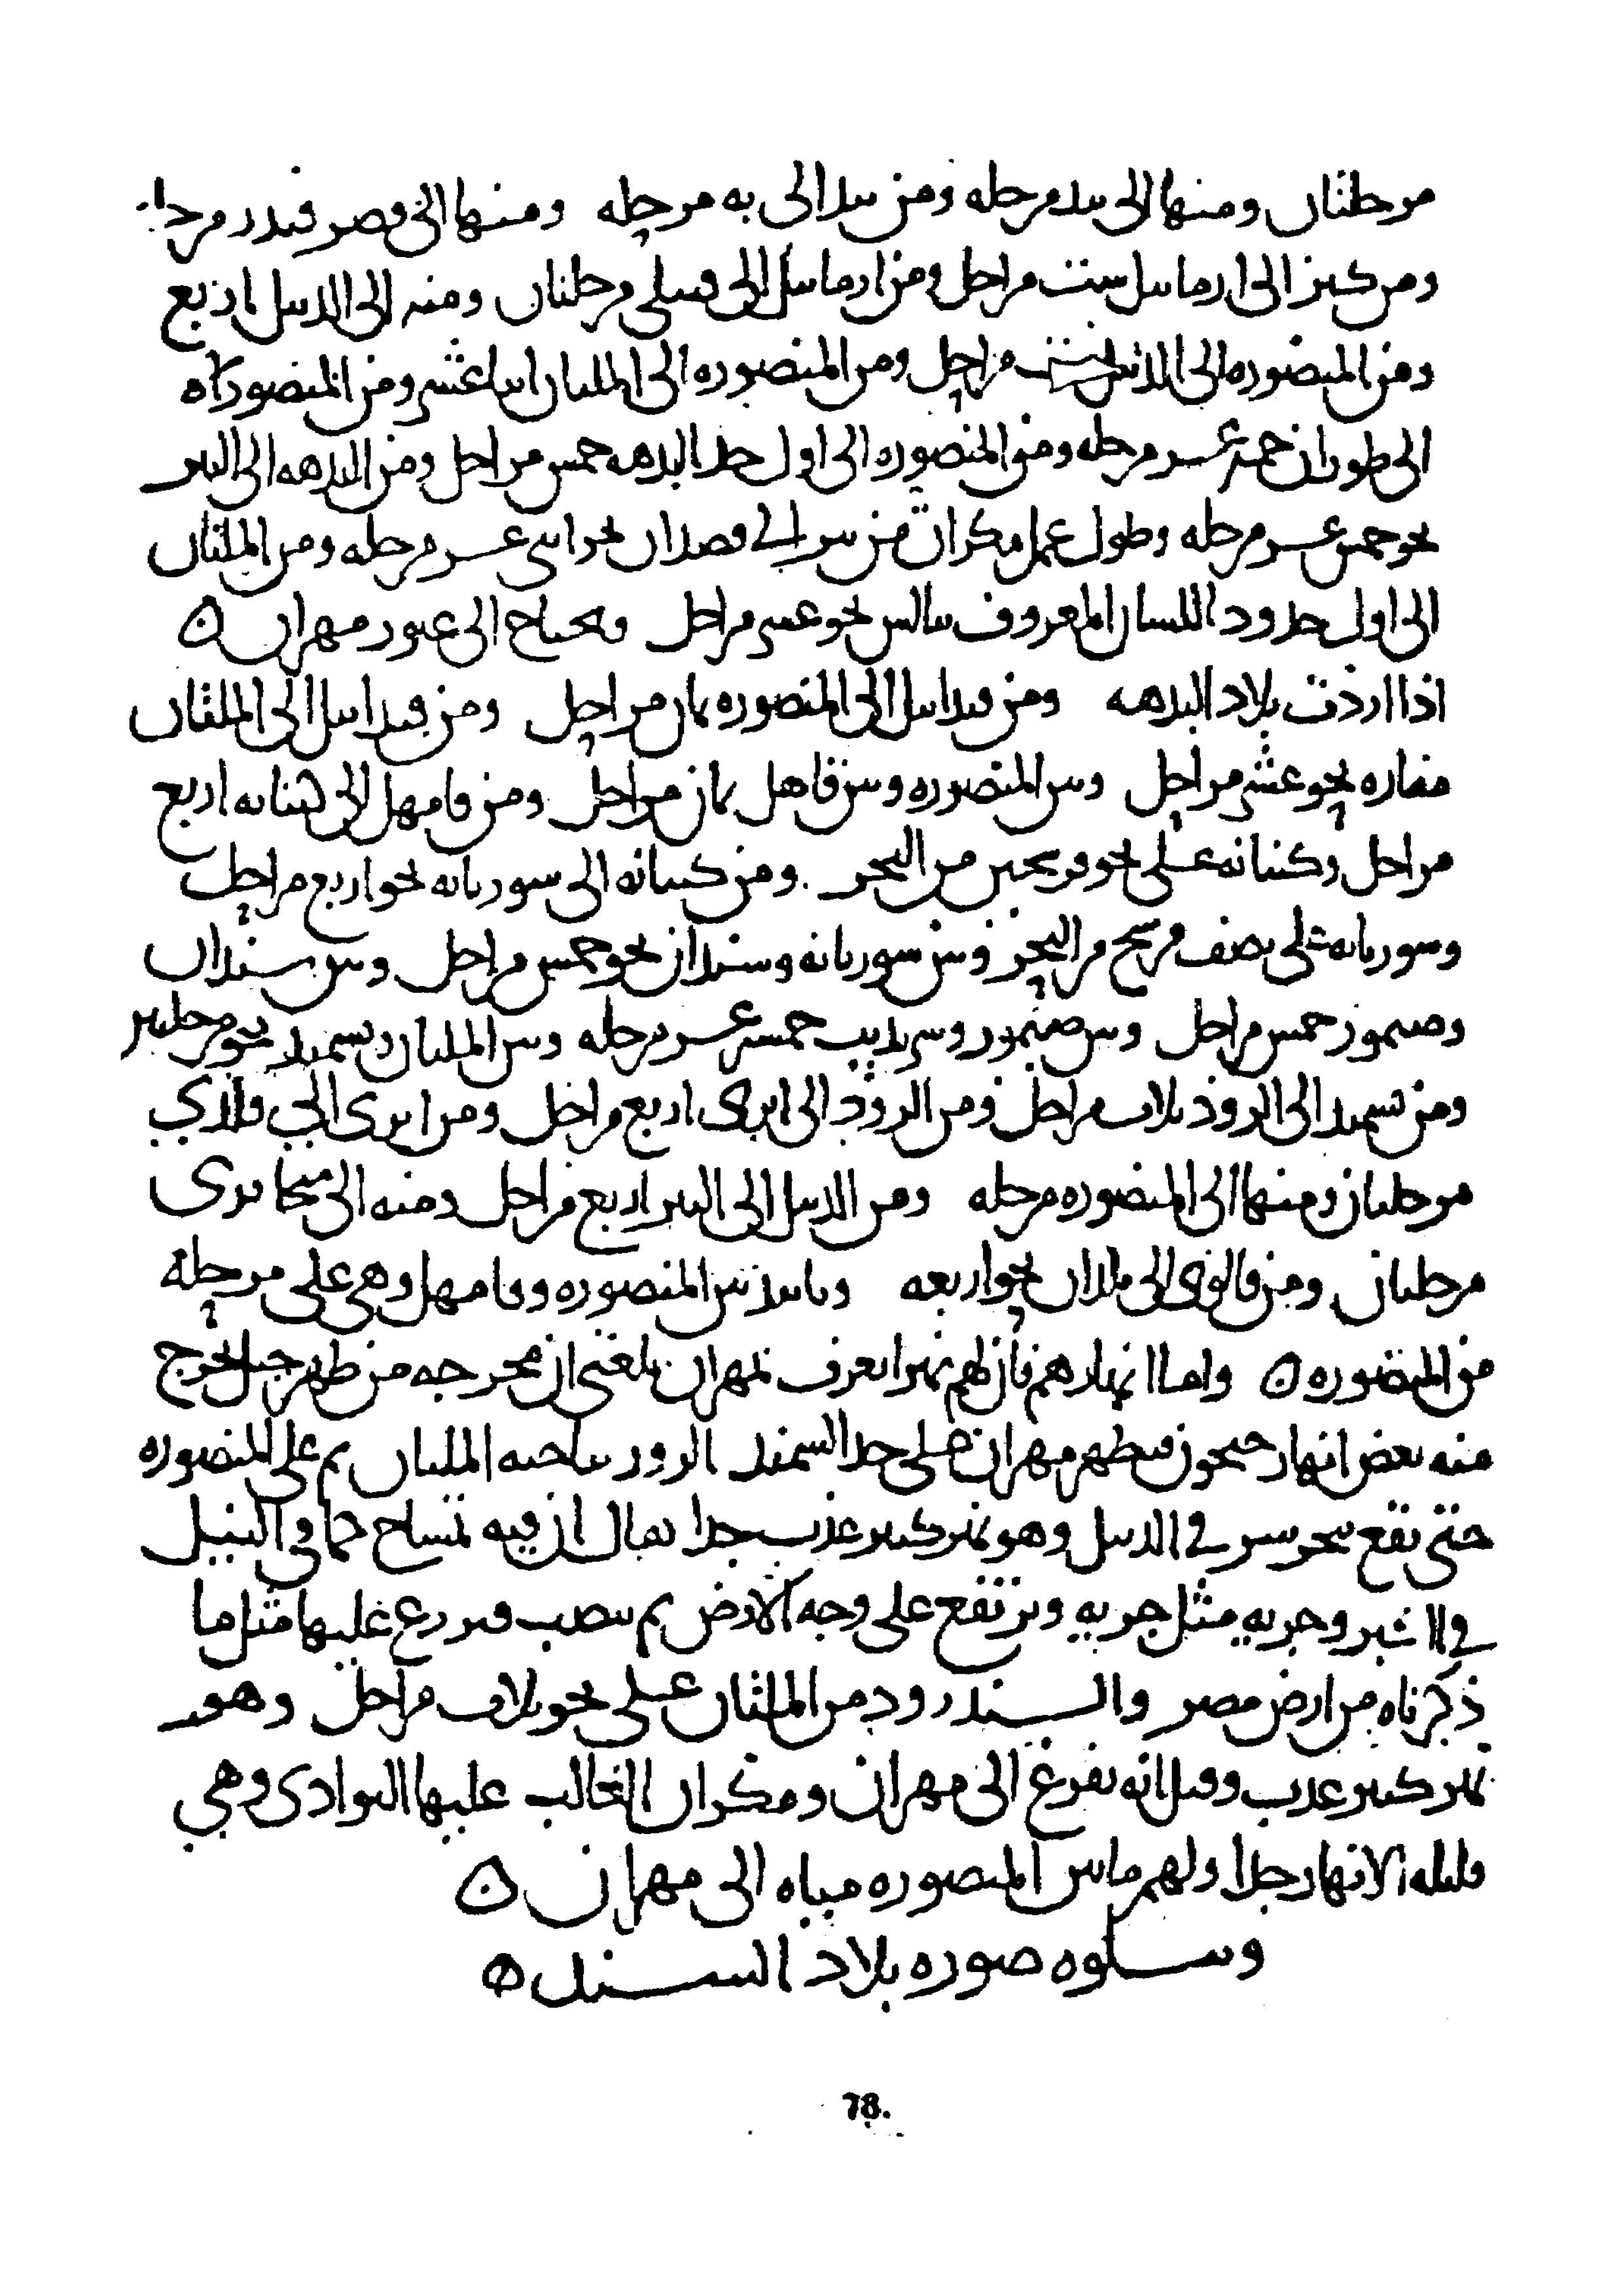 مرحلتان ومنها الى بيد مرحله ومن بيد الى به مرحله ومنها الى قصر قيدر مرحله
ومن كيز الى ارمابيل ست مراحل ومن ارمابيل الى قنبلى مرحلتان ومنه الى الديبل اربع
ومن المنصوره الى الديبل ست مراحل ومن المنصوره الى الملتان اثنا عشر ومن المنصوره
الى طوران خمس عشر مرحله ومن المنصوره الى اول حد البدهه خمس مراحل ومن البدهه الى التير
نحو خمس عشر مرحله وطول عمل مكران من تير الى قصدان نحو اثنى عشر مرحله ومن الملتان
الى اول حدود المعروف ببالس نحو عشر مراحل وتحتاج الى عبور مهران ه
اذا اردت بلاد البدهه ومن قندابيل الى المنصوره ثمان مراحل ومن قندابيل الى الملتان
مفازه نحو عشر مراحل وبين المنصوره وبين قامهل ثمان مراحل ومن قامهل الى كنبايه اربع
مراحل وكنبايه على نحو فرسخين من البحر ومن كنبايه الى سوربايه نحو اربع مراحل
وسوربايه على نصف فرسخ من البحر وبين سوربايه وسندان نحو خمس مراحل وبين سندان
وصيمور خمس مراحل وبين صيمور وسرنديب خمس عشر مرحله وبين الملتان وبسمد نحو مرحلتين
ومن بسمد الى الروذ ثلاث مراحل ومن الروذ الى انرى اربع مراحل ومن انرى الى قلرى
مرحلتان ومنها الى المنصوره مرحله ومن الديبل الى التير اربع مراحل ومنه الى منجابرى
مرحلتان ومن قالوى الى بلدان نحو اربعه وبانيه بين المنصوره وقامهل وهى على مرحله
من المنصوره ه واما انهارهم فان لهم نهرا يعرف بمهران بلغنى ان مخرجه من ظهر جبل يخرج
منه بعض انهار جيحون فيظهر مهران على حد السمند الرور بناحيه الملتان ثم على المنصوره
حتى يقع فى الديبل وهو نهر كبير عذب جدا يقال ان فيه تمساح كما فى النيل
وجريه مثل جريه ويرتفع على وجه الارض ثم ينصب فيزرع عليها مثل ما
ذكرناه من ارض مصر والسندرود من الملتان على نحو ثلاث مراحل وهو
نهر كبير عذب وقيل انه يفرغ الى مهران ومكران الغالب عليها البوادى وهى
قليله الانهار جدا ولهم ما بين المنصوره مياه الى مهران ه
ويتلوه صوره بلاد السند ه
78.